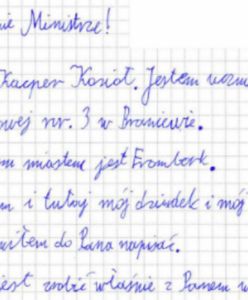 nie Ministrze!
Kacper Kozioł. Jestem uczni
owej nr. 3 w Braniewie.
m miastem jest Frombork.
m i tutaj mój dziadek i mój
iłem do Pana napisać.
jest zrobić właśnie z Panem w